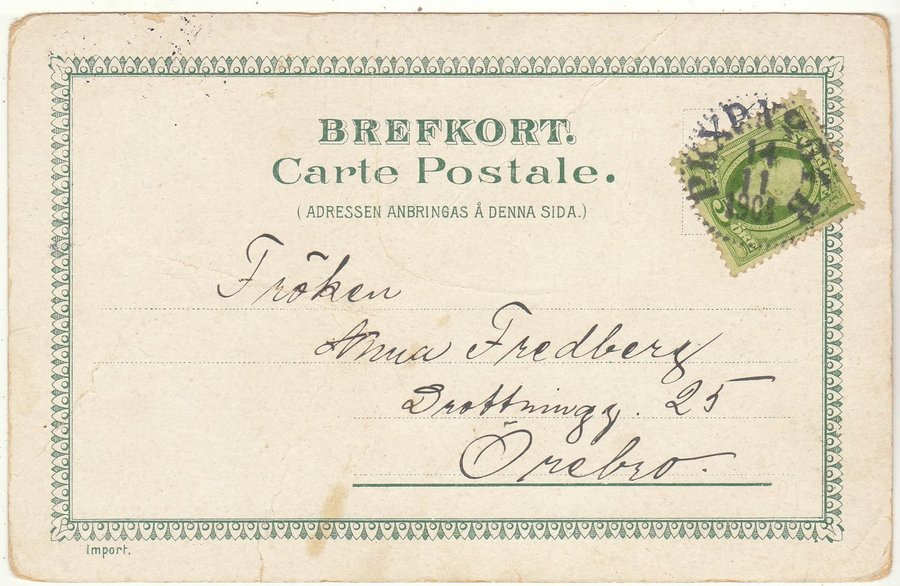 BREFKORT.
Carte Postale.
(ADRESSEN ANBRINGAS Å DENNA SIDA.)
14
11
1901
5
Fröken
Anna Fredberg
Drottningg. 25
Örebro.
Import.